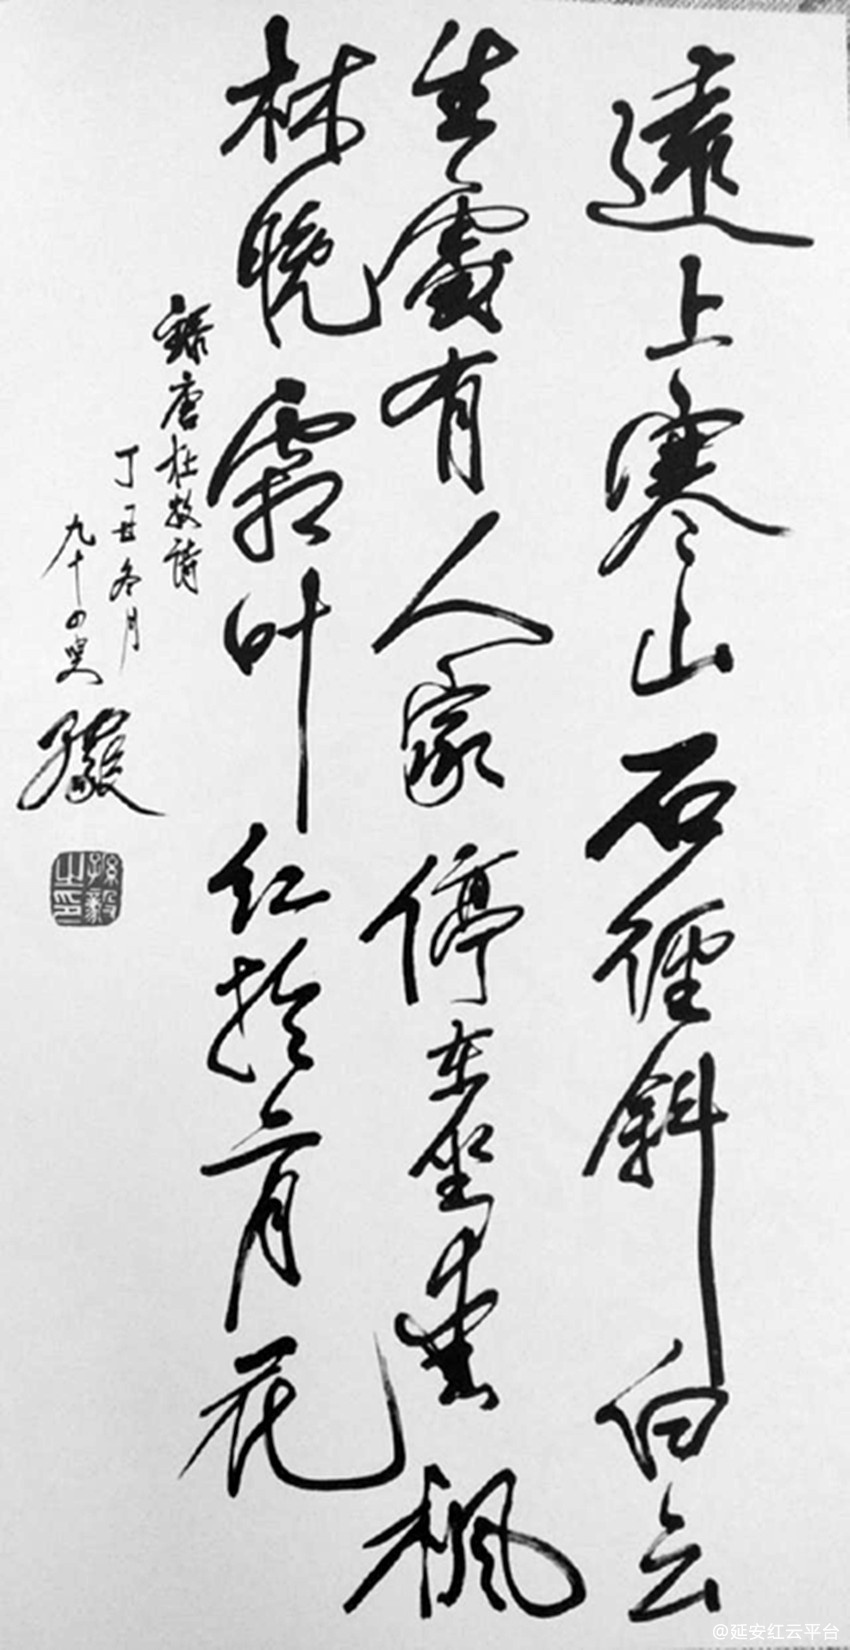 遠上寒山石徑斜白云
生處有人家停车坐愛枫
林晚霜叶红於二月花
錄唐杜牧詩
丁丑冬月
九十四叟
毅
@延安红云平台